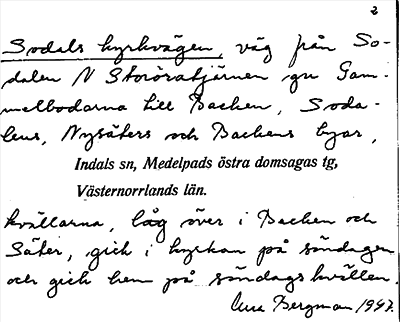 2
Sodals kyrkvägen, väg från So-
dalen N Storöratjärnen gm Gam-
melbodarna till Backen, Soda-
lens, Nysäters och Backens byar,
Indals sn, Medelpads östra domsagas tg,
Västernorrlands län.
kvällarna, låg över i Backen och
Säter, gick i kyrkan på söndagen
och gick hem på söndagskvällen.
Bergman 1947.